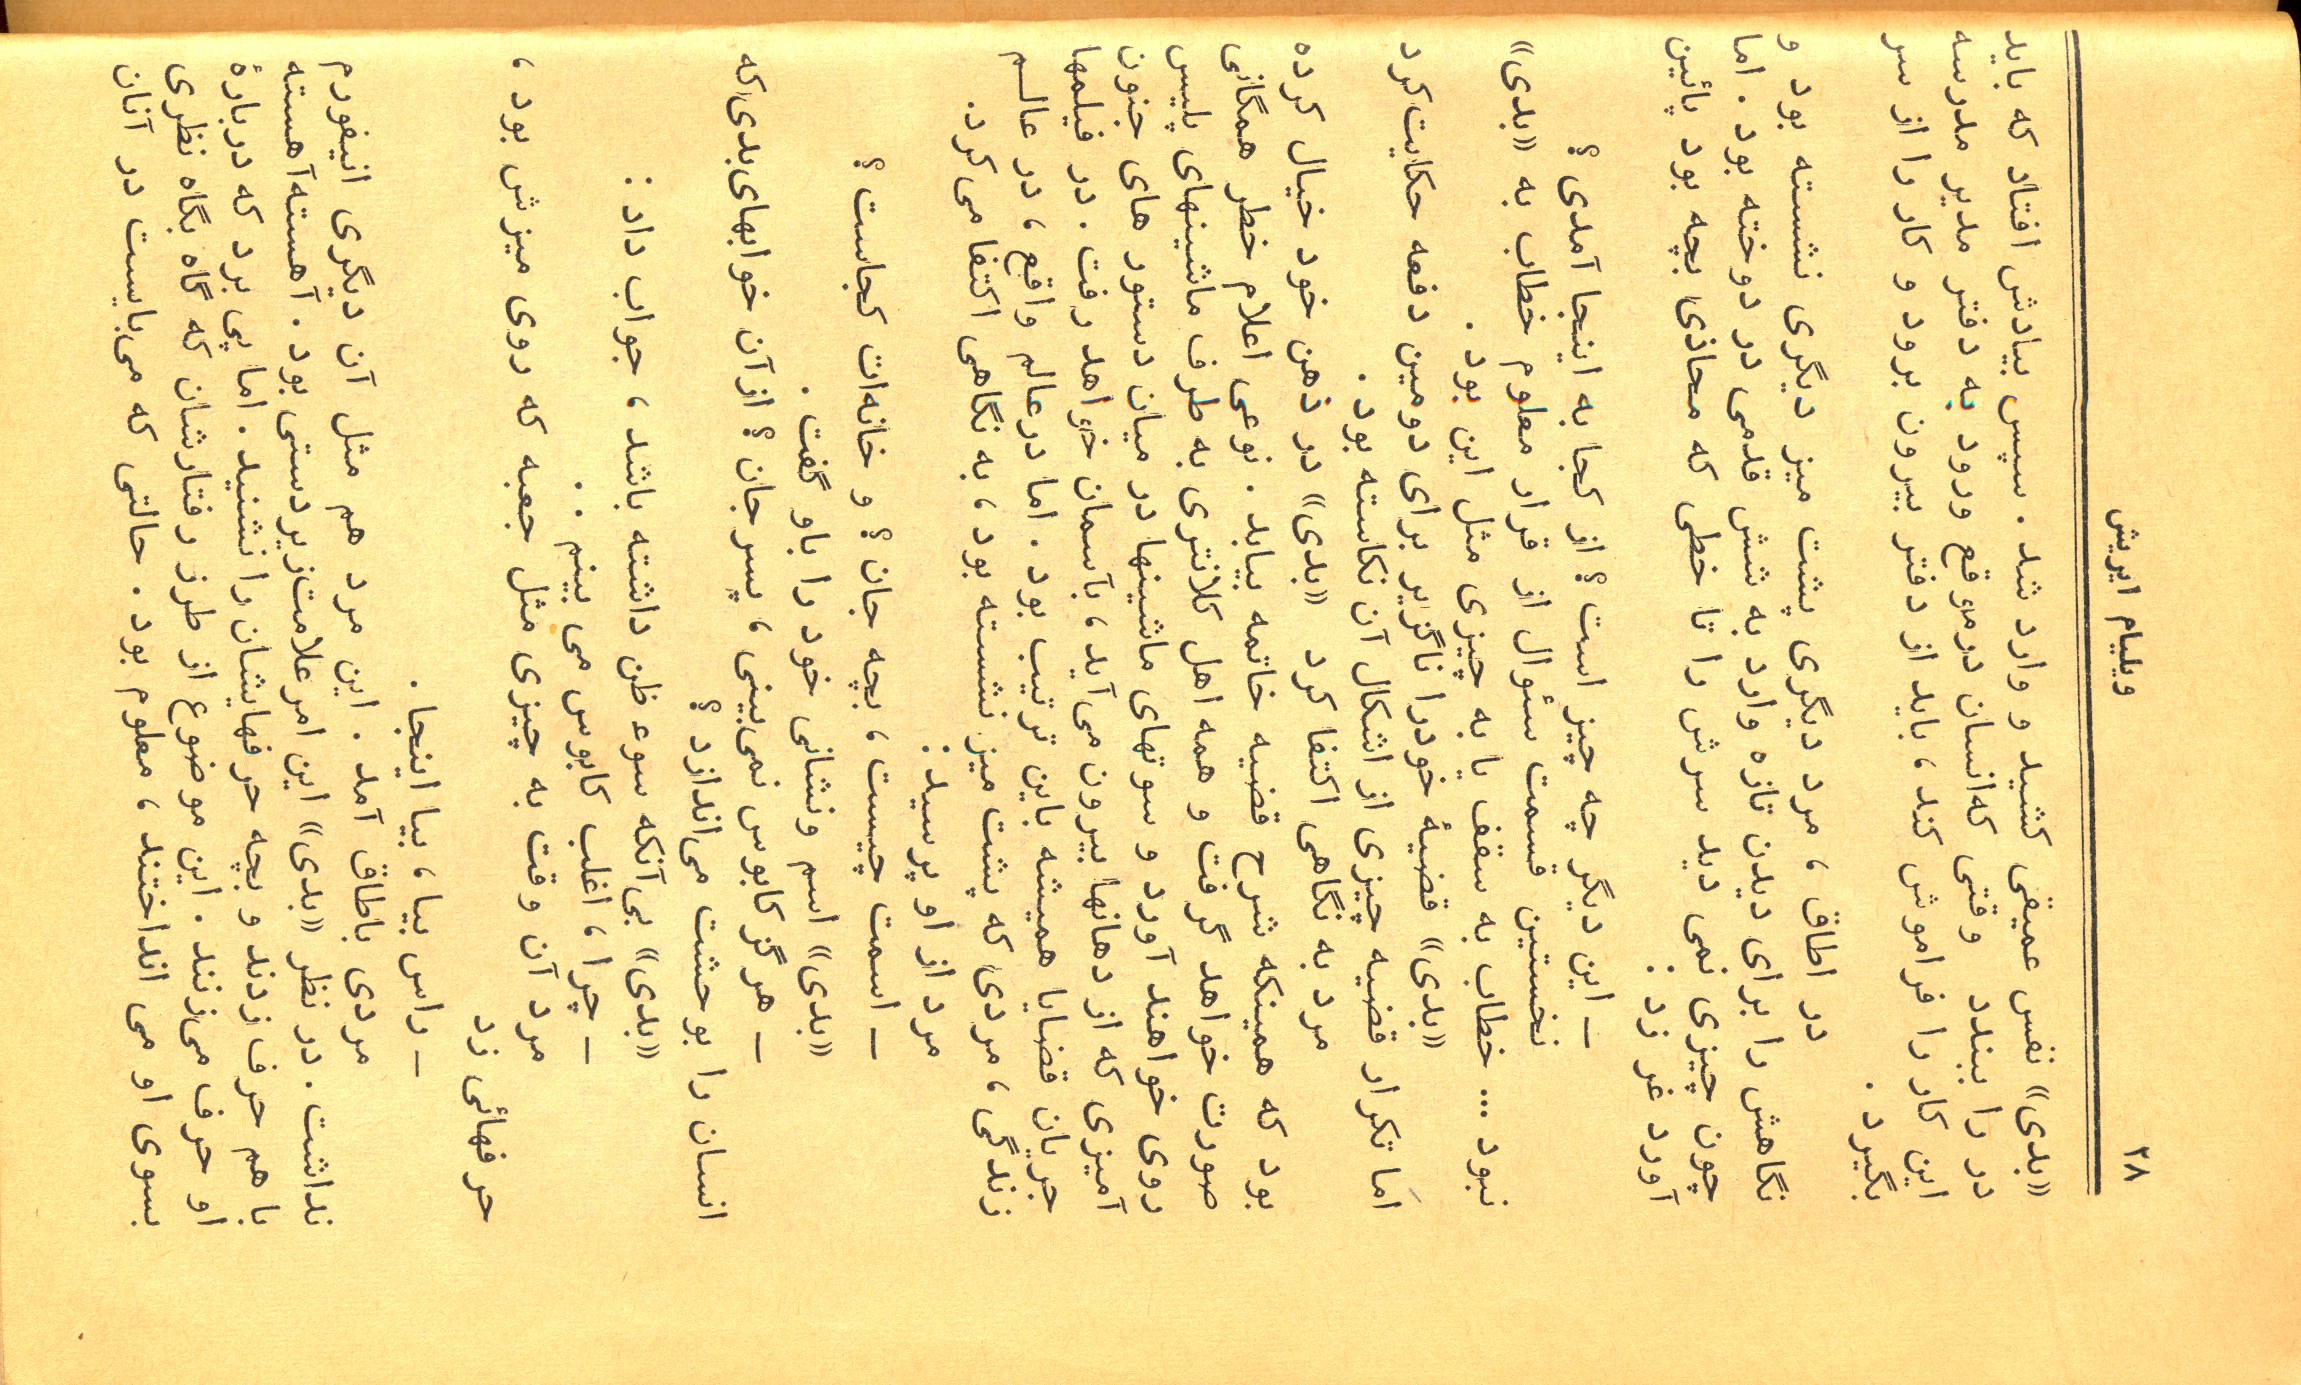 ۲۸
ویلیام ایریش
«بدی» نفس عمیقی کشید و وارد شد. سپس بیادش افتاد که باید
در را ببندد وقتی که‌انسان درموقع ورود به دفتر مدیر مدرسه
این کار را فراموش کند، باید از دفتر بیرون برود و کار را از سر
بگیرد.
در اطاق، مرد دیگری پشت میز دیگری نشسته بود و
نگاهش را برای دیدن تازه وارد به شش قدمی در دوخته بود. اما
چون چیزی نمی دید سرش را تا خطی که محاذی بچه بود پائین
آورد غر زد:
— این دیگر چه چیز است؟ از کجا به اینجا آمدی؟
نخستین قسمت سئوال از قرار معلوم خطاب به «بدی»
نبود... خطاب به سقف یا به چیزی مثل این بود.
«بدی» قضیهٔ خودرا ناگزیر برای دومین دفعه حکایت‌کرد
اما تکرار قضیه چیزی از اشکال آن نکاسته بود.
مرد به نگاهی اکتفا کرد «بدی» در ذهن خود خیال کرده
بود که همینکه شرح قضیه خاتمه بیابد. نوعی اعلام خطر همگانی
صورت خواهد گرفت و همه اهل کلانتری به طرف ماشینهای پلیس
روی خواهند آورد و سوتهای ماشینها در میان دستور های جنون
آمیزی که از دهانها بیرون می‌آید، بآسمان خواهد رفت. در فیلمها
جریان قضایا همیشه باین ترتیب بود. اما درعالم واقع، در عالـم
زندگی، مردی که پشت میز نشسته بود، به نگاهی اکتفا می‌کرد.
مرد از او پرسید:
— اسمت چیست، بچه جان؟ و خانه‌ات کجاست؟
«بدی» اسم ونشانی خود را باو گفت.
— هرگز کابوس نمی‌بینی، پسر جان؟ ازآن خوابهای‌بدی‌که
انسان را بوحشت می‌اندازد؟
«بدی» بی‌آنکه سوء ظن داشته باشد، جواب داد:
— چرا، اغلب کابوس می بینم...
مرد آن وقت به چیزی مثل جعبه که روی میزش بود،
حرفهائی زد
— راس بیا، بیا اینجا.
مردی باطاق آمد. این مرد هم مثل آن دیگری انیفورم
نداشت. در نظر «بدی» این امر علامت‌زبردستی بود. آهسته‌آهسته
با هم حرف زدند و بچه حرفهایشان را نشنید. اما پی برد که دربارهٔ
او حرف می‌زنند. این موضوع از طرز رفتارشان که گاه بگاه نظری
بسوی او می انداختند، معلوم بود. حالتی که می‌بایست در آنان